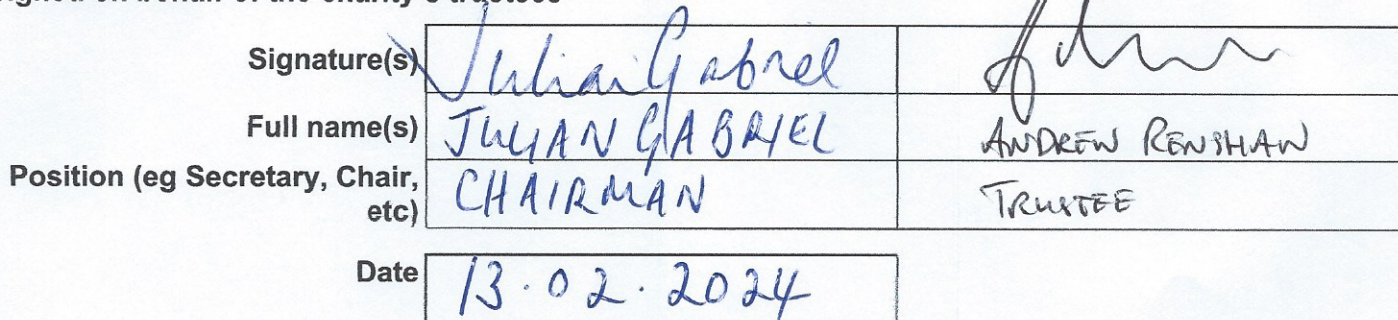 Signature(s) Julian Gabriel
Full name(s) JULIAN GABRIEL ANDREW RENSHAW
Position (eg Secretary, Chair, CHAIRMAN TRUSTEE
etc)
Date 13.02.2024